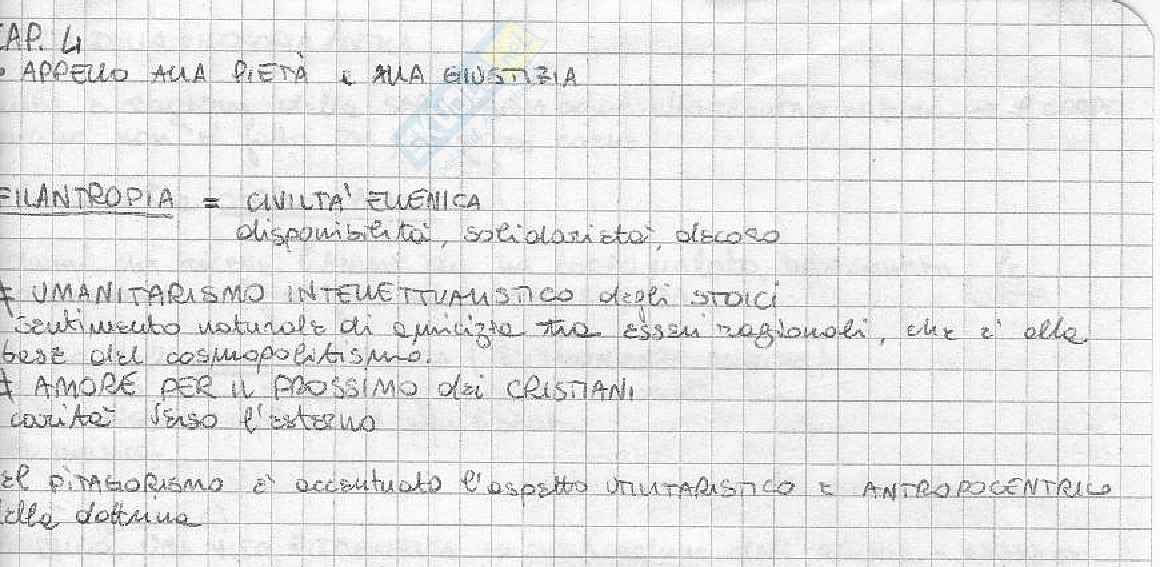 CAP. 4
• APPELLO ALLA PIETÀ E ALLA GIUSTIZIA
FILANTROPIA = CIVILTA' ELLENICA
disponibilità, solidarietà, decoro
≠ UMANITARISMO INTELLETTUALISTICO degli STOICI
sentimento naturale di amicizia tra esseri razionali, che è alla
base del cosmopolitismo.
≠ AMORE PER IL PROSSIMO dei CRISTIANI
carità verso l'esterno
el PITAGORISMO è accentuato l'aspetto UTILITARISTICO E ANTROPOCENTRICO
della dottrina